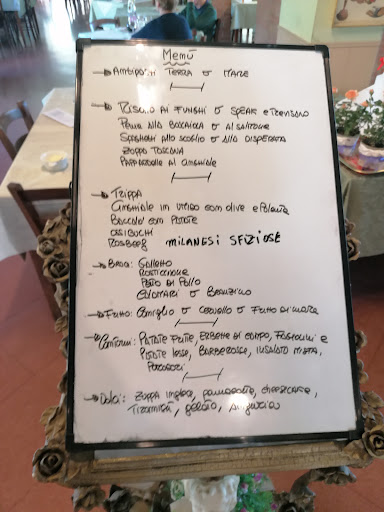 Menù
Antipasti TERRA o MARE
Risotto Ai Funghi o SPEAK e TREVISANO
Penne alla Boscaiola o Al salmone
Spaghetti Allo scoglio o Alla DISPERATA
Zuppa TOSCANA
PAPPARDELLE AL CINGHIALE
TRIPPA
Cinghiale in umido con olive e Polenta
Baccalà con PATATE
OSSIBUCHI
ROSBEEF MILANESI SFIZIOSE
Brace: Galletto
ROSTICCIANA
Petto di Pollo
CALAMARI o Branzino
Fritto: Coniglio o Cervello o Fritto di mare
Contorni: PATATE FRITTE, ERBETTE DI CAMPO, FAGIOLINI e
PATATE lesse, BARBEROSSE, INSALATA MISTA,
POMODORI
Dolci: Zuppa inglese, pannacotta, cheesecake,
Tiramisù, gelato,